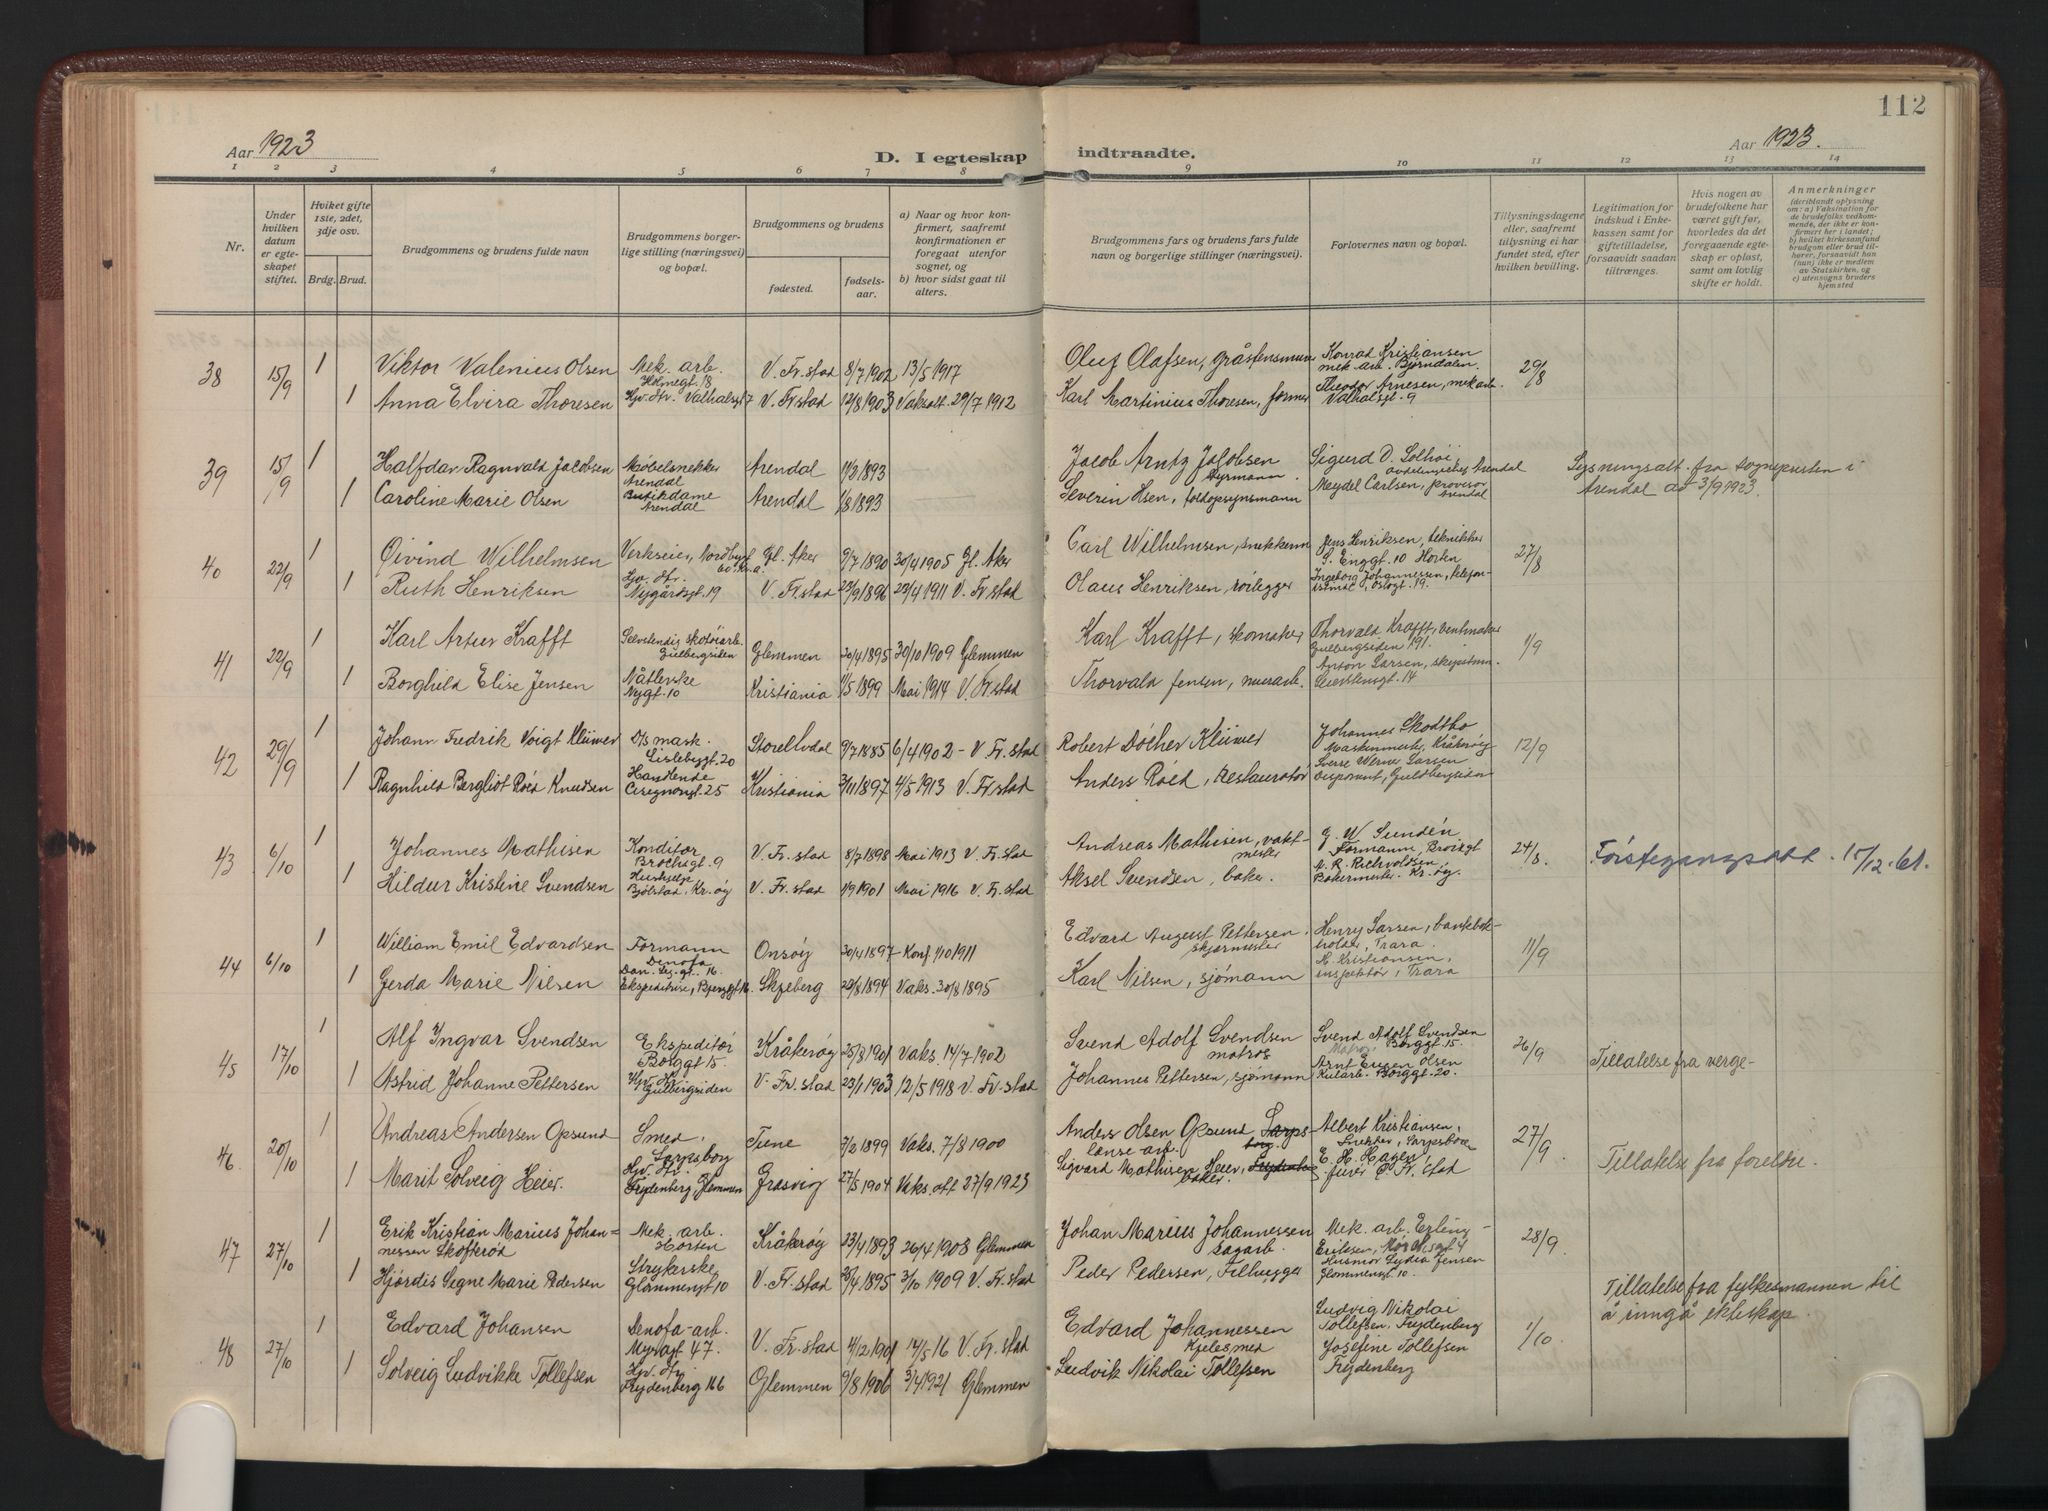 112
Aar 1923
D. I egteskap indtraadte.
Aar 1923.
1 2 3 4 5 6 7 8 9 10 11 12 13 14
Nr.
Under hvilken datum er egteskapet stiftet.
Hviket gifte 1ste, 2det, 3dje osv.
Brdg. Brud.
Brudgommens og brudens fulde navn
Brudgommens borgerlige stilling (næringsvei) og bopæl.
Brudgommens og brudens
fødested.
fødselsaar.
a) Naar og hvor konfirmert, saafremt konfirmationen er foregaat utenfor sognet, og
b) hvor sidst gaat til alters.
Brudgommens fars og brudens fars fulde navn og borgerlige stillinger (næringsvei).
Forlovernes navn og bopæl.
Tillysningsdagene eller, saafremt tillysning ei har fundet sted, efter hvilken bevilling.
Legitimation for indskud i Enkekassen samt for giftetilladelse, forsaavidt saadan tiltrænges.
Hvis nogen av brudefolkene har været gift før, hvorledes da det foregaaende egteskap er opløst, samt om lovlig skifte er holdt.
Anmerkninger (deriblandt oplysning om: a) Vaksination for de brudefolks vedkommende, der ikke er konfirmert her i landet; b) hvilket kirkesamfund brudgom eller brud tilhører, forsaavidt han (hun) ikke er medlem av Statskirken, og c) utensogns bruders hjemsted
38 15/9 1 Viktor Valenius Olsen Mek. arb. Holmegt. 18 V. Fr.stad 8/7 1902 13/5 1917 Oluf Olafsen, gråstensmurer Konrad Kristiansen mek arb. Bjørndalen. 29/8
1 Anna Elvira Thoresen Hjv. dtr. Valhalsgt 7 V. Fr.stad 12/8 1903 Vaksatt. 29/7 1912 Karl Martinius Thoresen, former Theodor Arnesen, mek arb. Valhalsgt. 9
39 15/9 1 Halfdan Ragnvald Jacobsen Møbelsnekker Arendal Arendal 11/2 1893 Jacob Arntz Jacobsen Styrmann. Sigurd D. Solhøi, avdelingschef Arendal Lysningsatt. fra sognepresten i Arendal av 3/9 1923.
1 Caroline Marie Olsen Butikdame Arendal Arendal 1/8 1893 Severin Olsen, foldopsynsmann Meydel Carlsen, provisor Arendal
40 22/9 1 Øivind Wilhelmsen Verkseier, Nordbygt 60 Kr.a. Gl. Aker 9/7 1890 30/4 1905 Gl. Aker Carl Wilhelmsen, snekkerm Jens Henriksen, tekniker S. Enggt. 10 Horten 27/8
1 Ruth Henriksen Hjv. dtr. Nygårdsgt. 19 V. Fr.stad 23/9 1896 23/4 1911 V. Fr.stad Olaus Henriksen, rørlegger Ingeborg Johannessen, Oslogt. 19.
41 22/9 1 Karl Artur Krafft Selvstendig skotøiarb. Gulbergsiden Glemmen 20/4 1895 30/10 1909 Glemmen Karl Krafft, skomaker Thorvald Krafft, Gulbergsiden 191. 1/9
1 Borghild Elise Jensen Nåtlerske Nygt. 10 Kristiania 1/5 1899 Mai 1914 V. Fr.stad Thorvald Jensen, murarb. Anton Larsen, 14
42 29/9 1 Johann Fredrik Voigt Klüwer D/s mask. Lislebygt. 20 Storelvdal 9/7 1885 6/4 1902 - V. Fr.stad Robert Döcher Klüwer Johannes Skodtbo Maskinmester, Kråkerøy 12/9
1 Ragnhild Bergliot Røed Knudsen Handlende 25 Kristiania 3/11 1897 4/5 1913 V. Fr.stad Anders Røed, Restauratør Sverre Werner Larsen Disponent, Guldbergsiden
43 6/10 1 Johannes Mathisen Konditor Brochsgt. 9 V. Fr. stad 8/7 1898 Mai 1913 V. Fr.stad Andreas Mathisen, vaktmester G. W. Sundén Formann, Broiksgt 24/8. Førstegangsatt. 15/12.61.
1 Hildur Kristine Svendsen Hushjelp Bjølstad, Kr. øy V. Fr. stad 1/9 1901 Mai 1916 V. Fr. stad Aksel Svendsen, baker. Bakermester. Kr. øy.
44 6/10 1 William Emil Edvardsen Formann Denofa Onsøy 30/4 1897 - Konf. 1/10 1911 Edvard August Pettersen, skjærmester Henry Larsen, bankbokholder, Trara. 11/9
1 Gerda Marie Nilsen Ekspeditrise, Skjeberg 23/8 1894 Vaks. 30/8 1895 Karl Nilsen, sjømann M. Kristiansen, inspektør, Trara
45 17/10 1 Alf Yngvar Svendsen Ekspeditør Borggt 15. Kråkerøy 25/8 1901 Vaks. 14/7 1902 Svend Adolf Svendsen matros Svend Adolf Svendsen Matros Borggt. 15. 26/9 Tillatelse fra verge-
1 Astrid Johanne Pettersen Hjv. dtr. Gulbergsiden V. Fr. stad 23/1 1903 12/5 1918 V. Fr. stad Johannes Pettersen, sjømann Arnt Eugen Olsen Kularb. Borggt. 20.
46. 20/10 1 Andreas Andersen Opsund Smed, Sarpsborg Tune 7/2 1899 Vaks. 7/8 1900 Anders Olsen Opsund Sarpsborg lænse arb. Albert Kristiansen, Snekker, Sarpsborg 27/9. Tillatelse fra foreldre.
1 Marit Solveig Heier. Hjv. dtr. Frydenberg Glemmen Græsvig 27/5 1904 Vaks. att 27/9 1923 Sigvard Mathisen Heier, Frydenberg baker. E. H. Hagen, furer Fr. stad
47 27/10 1 Erik Kristian Marius Johannessen Skofterød Mek. arb. Horten Kråkerøy 23/4 1893 26/4 1908 Glemmen Johan Marius Johannessen sagarb. Mek. arb. Erling Eriksen, Mosseveien 4 28/9.
1 Hjørdis Signe Marie Pedersen Strykerske Glommengt 10 V. Fr. stad 25/4 1895 3/10 1909 V. Fr. stad Peder Pedersen, Tilhugger Husmor Lydia Jensen Glommengt. 10.
48 27/10 1 Edvard Johansen Denofa-arb. Myragt 47. V. Fr. stad 14/2 1901 14/5 16 V. Fr. stad Edvard Johannessen Kjelesmed Ludvig Nikolai Tollefsen, Frydenberg 1/10 Tillatelse fra fylkesmannen til å inngå ekteskap.
1 Solveig Ludvikke Tollefsen Hjv. dtr. Frydenberg 166 Glemmen 9/8 1906 3/4 1921 Glemmen Ludvik Nikolai Tollefsen Josefine Tollefsen Frydenberg